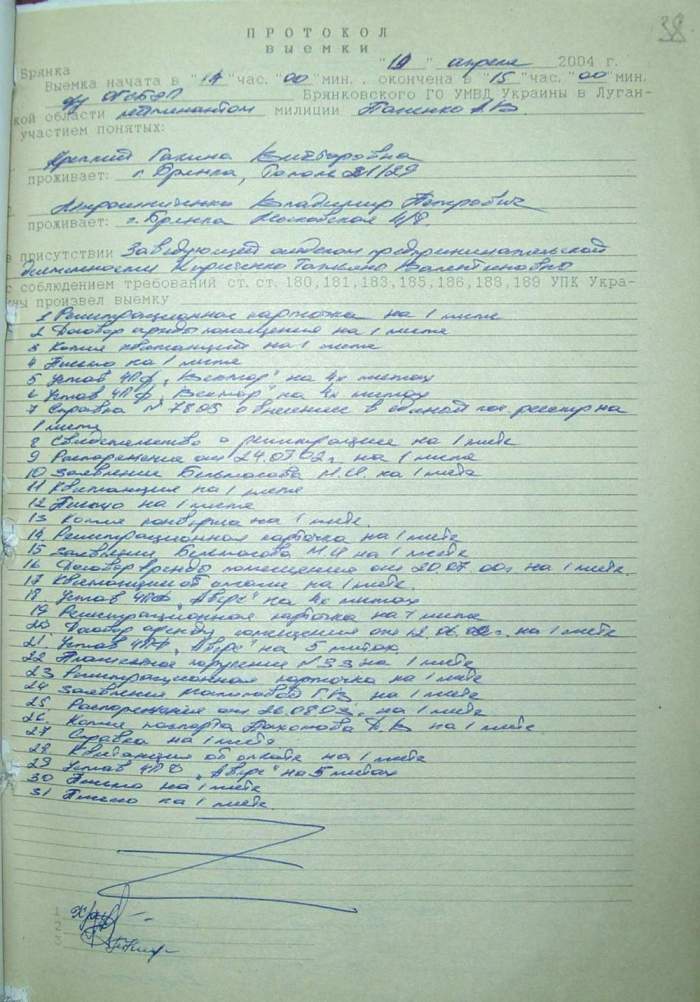 38
ПРОТОКОЛ
выемки
Брянка "19" апреля 2004 г.
Выемка начата в "14" час. "00" мин., окончена в "15" час. "00" мин.
ОГСБЭП Брянковского ГО УМВД Украины в Луган-
кой области лейтенантом милиции А.В.
участием понятых:
Галина Викторовна
проживает: г. Брянка, 21/29
Мирошниченко Владимир Петрович
проживает: г. Брянка Московская 4/8.
в присутствии Заведующей отделом предпринимательской
деятельности Кириченко Татьяно Валентиновно
с соблюдением требований ст. ст. 180,181,183,185,186,188,189 УПК Укра-
ны произвел выемку
1 Регистрационная карточка на 1 листе
2 Договор аренды помещения на 1 листе
3 Копия квитанции на 1 листе
4 Письмо на 1 листе
5 Устав ЧПФ "Вектор" на 4х листах
6 Устав ЧПФ "Вектор" на 4х листах
7 Справка № о внесении в единый гос. реестр на
1 листе
8 Свидетельство о регистрации на 1 листе
9 Распоряжение от 24.07.02г. на 1 листе
10 Заявление М.И. на 1 листе
11 Квитанция на 1 листе
12 Письмо на 1 листе
13 Копия конверта на 1 листе.
14 Регистрационная карточка на 1 листе
15 Заявление М.И на 1 листе
16 Договор аренды помещения от 20.07.00г на 1 листе.
17 Квитанции об оплате на 1 листе.
18. Устав ЧПФ "Аверс" на 4х листах
19 Регистрационная карточка на 1 листе
20 Договор аренды помещения от 12.06. г. на 1 листе
21. Устав ЧПФ "Аверс" на 5 листах
22 Платежное поручение № 33 на 1 листе
23 Регистрационная карточка на 1 листе
24 Заявление Г.В. на 1 листе
25 Распоряжение от 26.08.03г. на 1 листе
26. Копия паспорта В на 1 листе
27 Справка на 1 листе
28 Квитанция об оплате на 1 листе
29 Устав ЧПФ "Аверс" на 5 листах
30 Письмо на 1 листе
31 Письмо на 1 листе